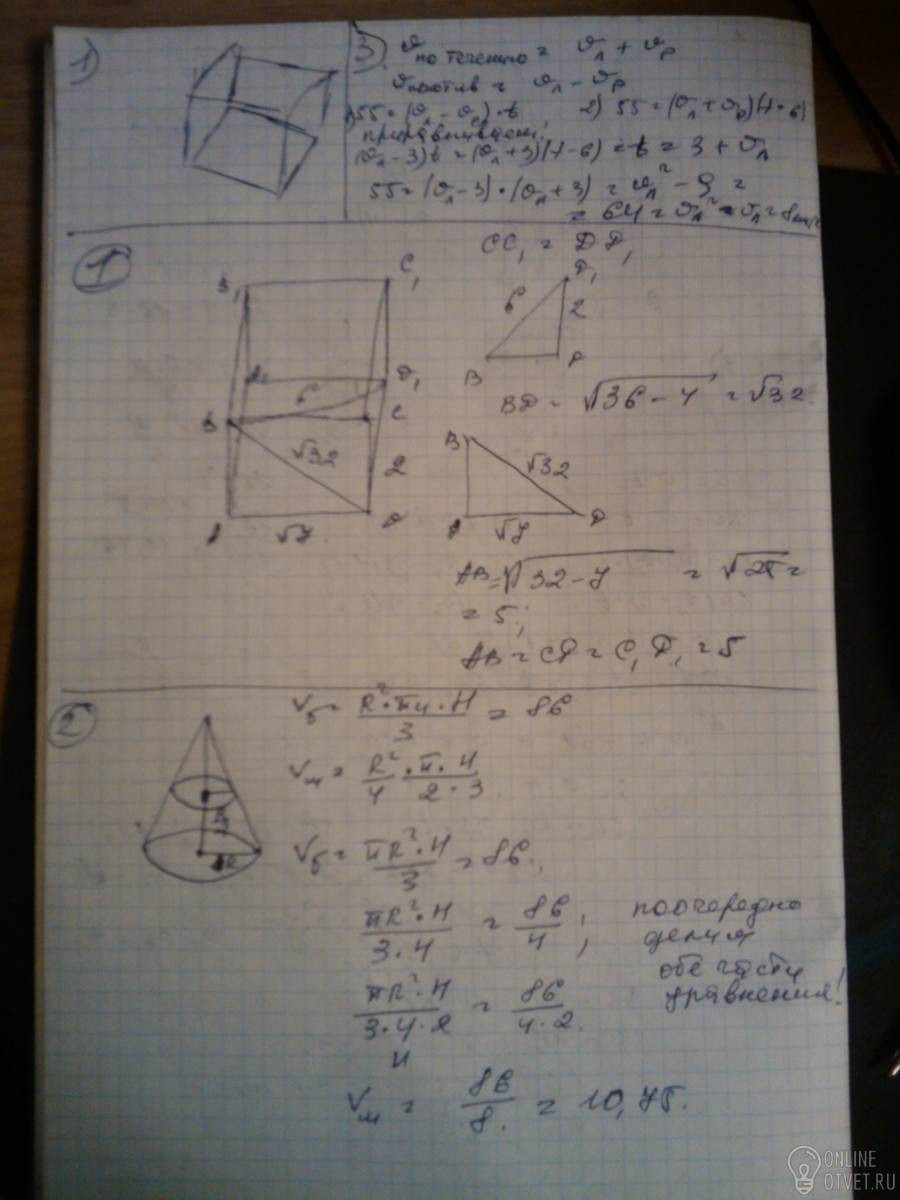 1)
3) υ по течению = υл + υр
υ против = υл - υр
1) 55 = (υл - υр)·t, 2) 55 = (υл + υр)(t-6)
приравниваем:
(υл - 3)t = (υл + 3)(t - 6) = t = 3 + υл
55 = (υл - 3)·(υл + 3) = υл² - 9 =
= 64 = υл² = υл = 8 км/ч
1
CC₁ = DD₁
B₁ C₁
A₁ D₁
6
B C
√32
2
A D
√7
D₁
6 2
B D
BD = √36 - 4 = √32.
B
√32
A D
√7
AB = √32 - 7 = √25 =
= 5;
AB = CD = C₁D₁ = 5
2
R
Vб = R²·π·H / 3 = 86
Vм = R²/4 · π·H / 2·3
Vб = πR²·H / 3 = 86.
πR²·H / 3·4 = 86 / 4; поочередно
делим
обе части
уравнения!
πR²·H / 3·4·2 = 86 / 4·2.
Vм = 86 / 8. = 10,75.
ONLINE
OTVET.RU